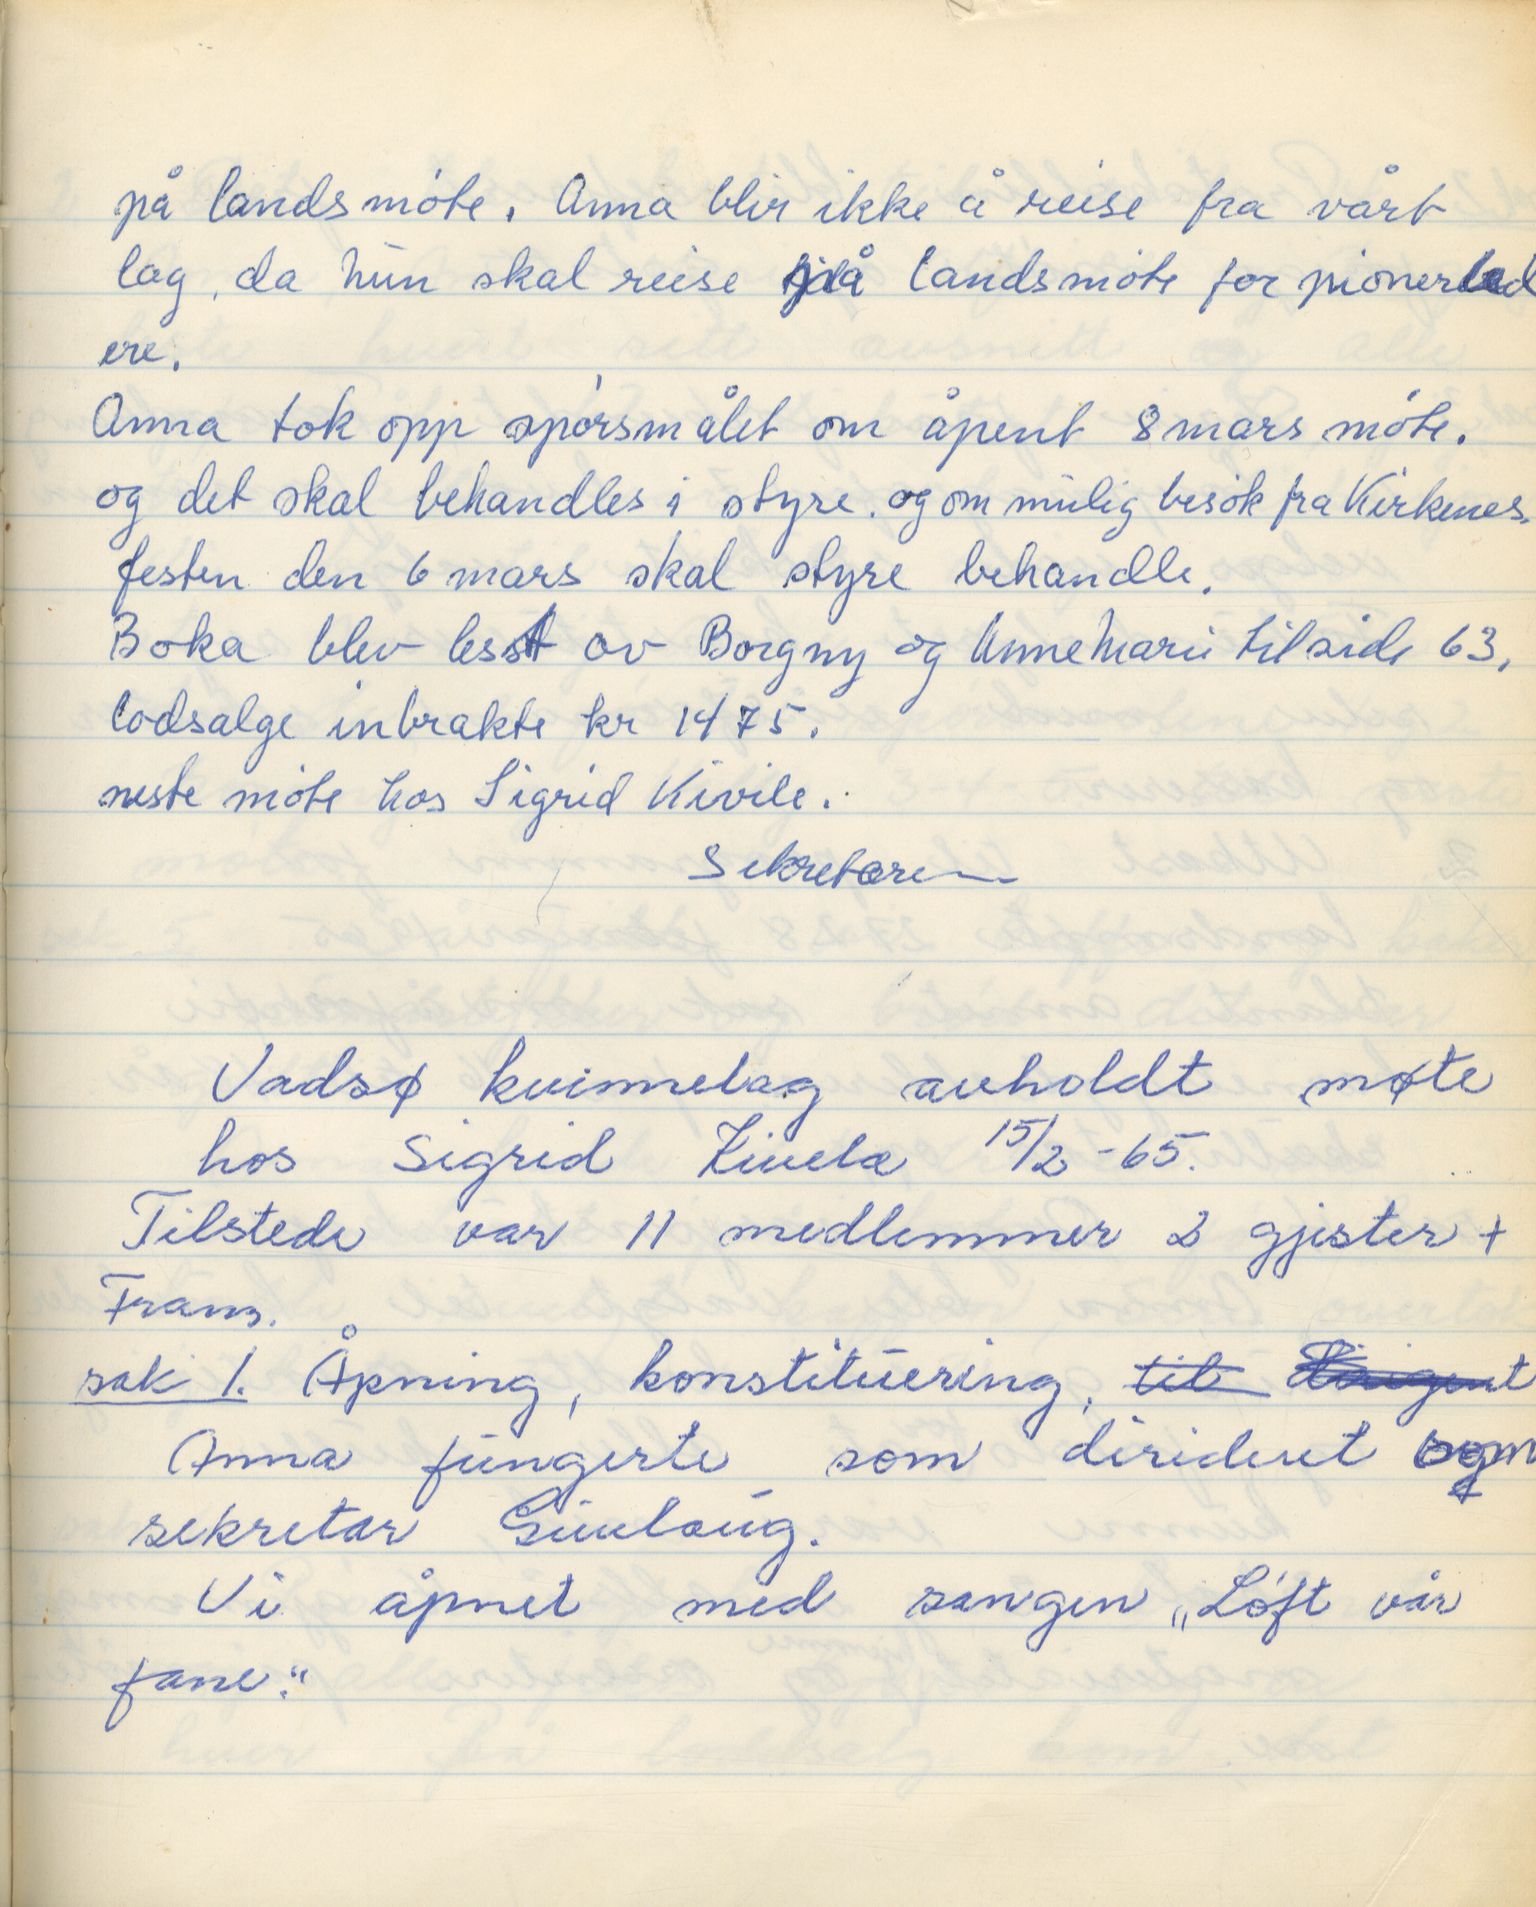 på landsmöte. Anna blir ikke å reise fra vårt
lag, da hun skal reise på landsmöte for pionerled
ere.
Anna tok opp spörsmålet om åpent 8 mars möte.
og det skal behandles i styre. og om mulig besök fra Kirkenes.
festen den 6 mars skal styre behandle.
Boka blev lest av Borgny og Anne Marie til side 63,
lodsalge inbrakte kr 1475.
neste möte hos Sigrid Kivile.
Sekretæren
Vadsø kvinnelag avholdt møte
hos Sigrid Kivela 15/2-65.
Tilstede var 11 medlemmer 2 gjester +
Franz.
sak 1. Åpning, konstituering, til dirigent
Anna fungerte som dirident og
sekretar Gunlaug.
Vi åpnet med sangen „Löft vår
fane."